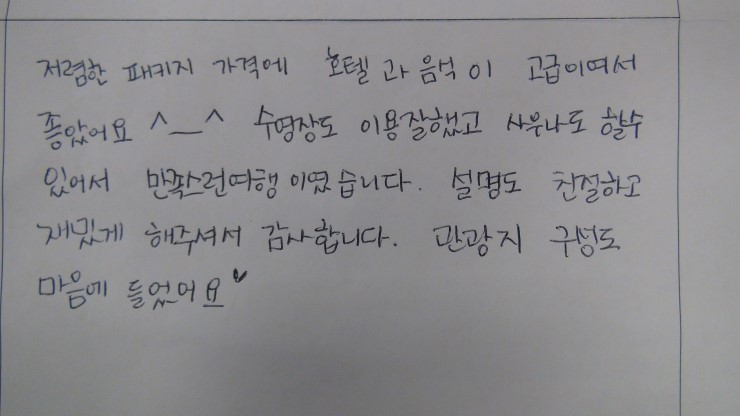 저렴한 패키지 가격에 호텔과 음식이 고급이여서
좋았어요 ^__^ 수영장도 이용잘했고 사우나도 할수
있어서 만족스런여행이였습니다. 설명도 친절하고
재밌게 해주셔서 감사합니다. 관광지 구성도
마음에 들었어요♥